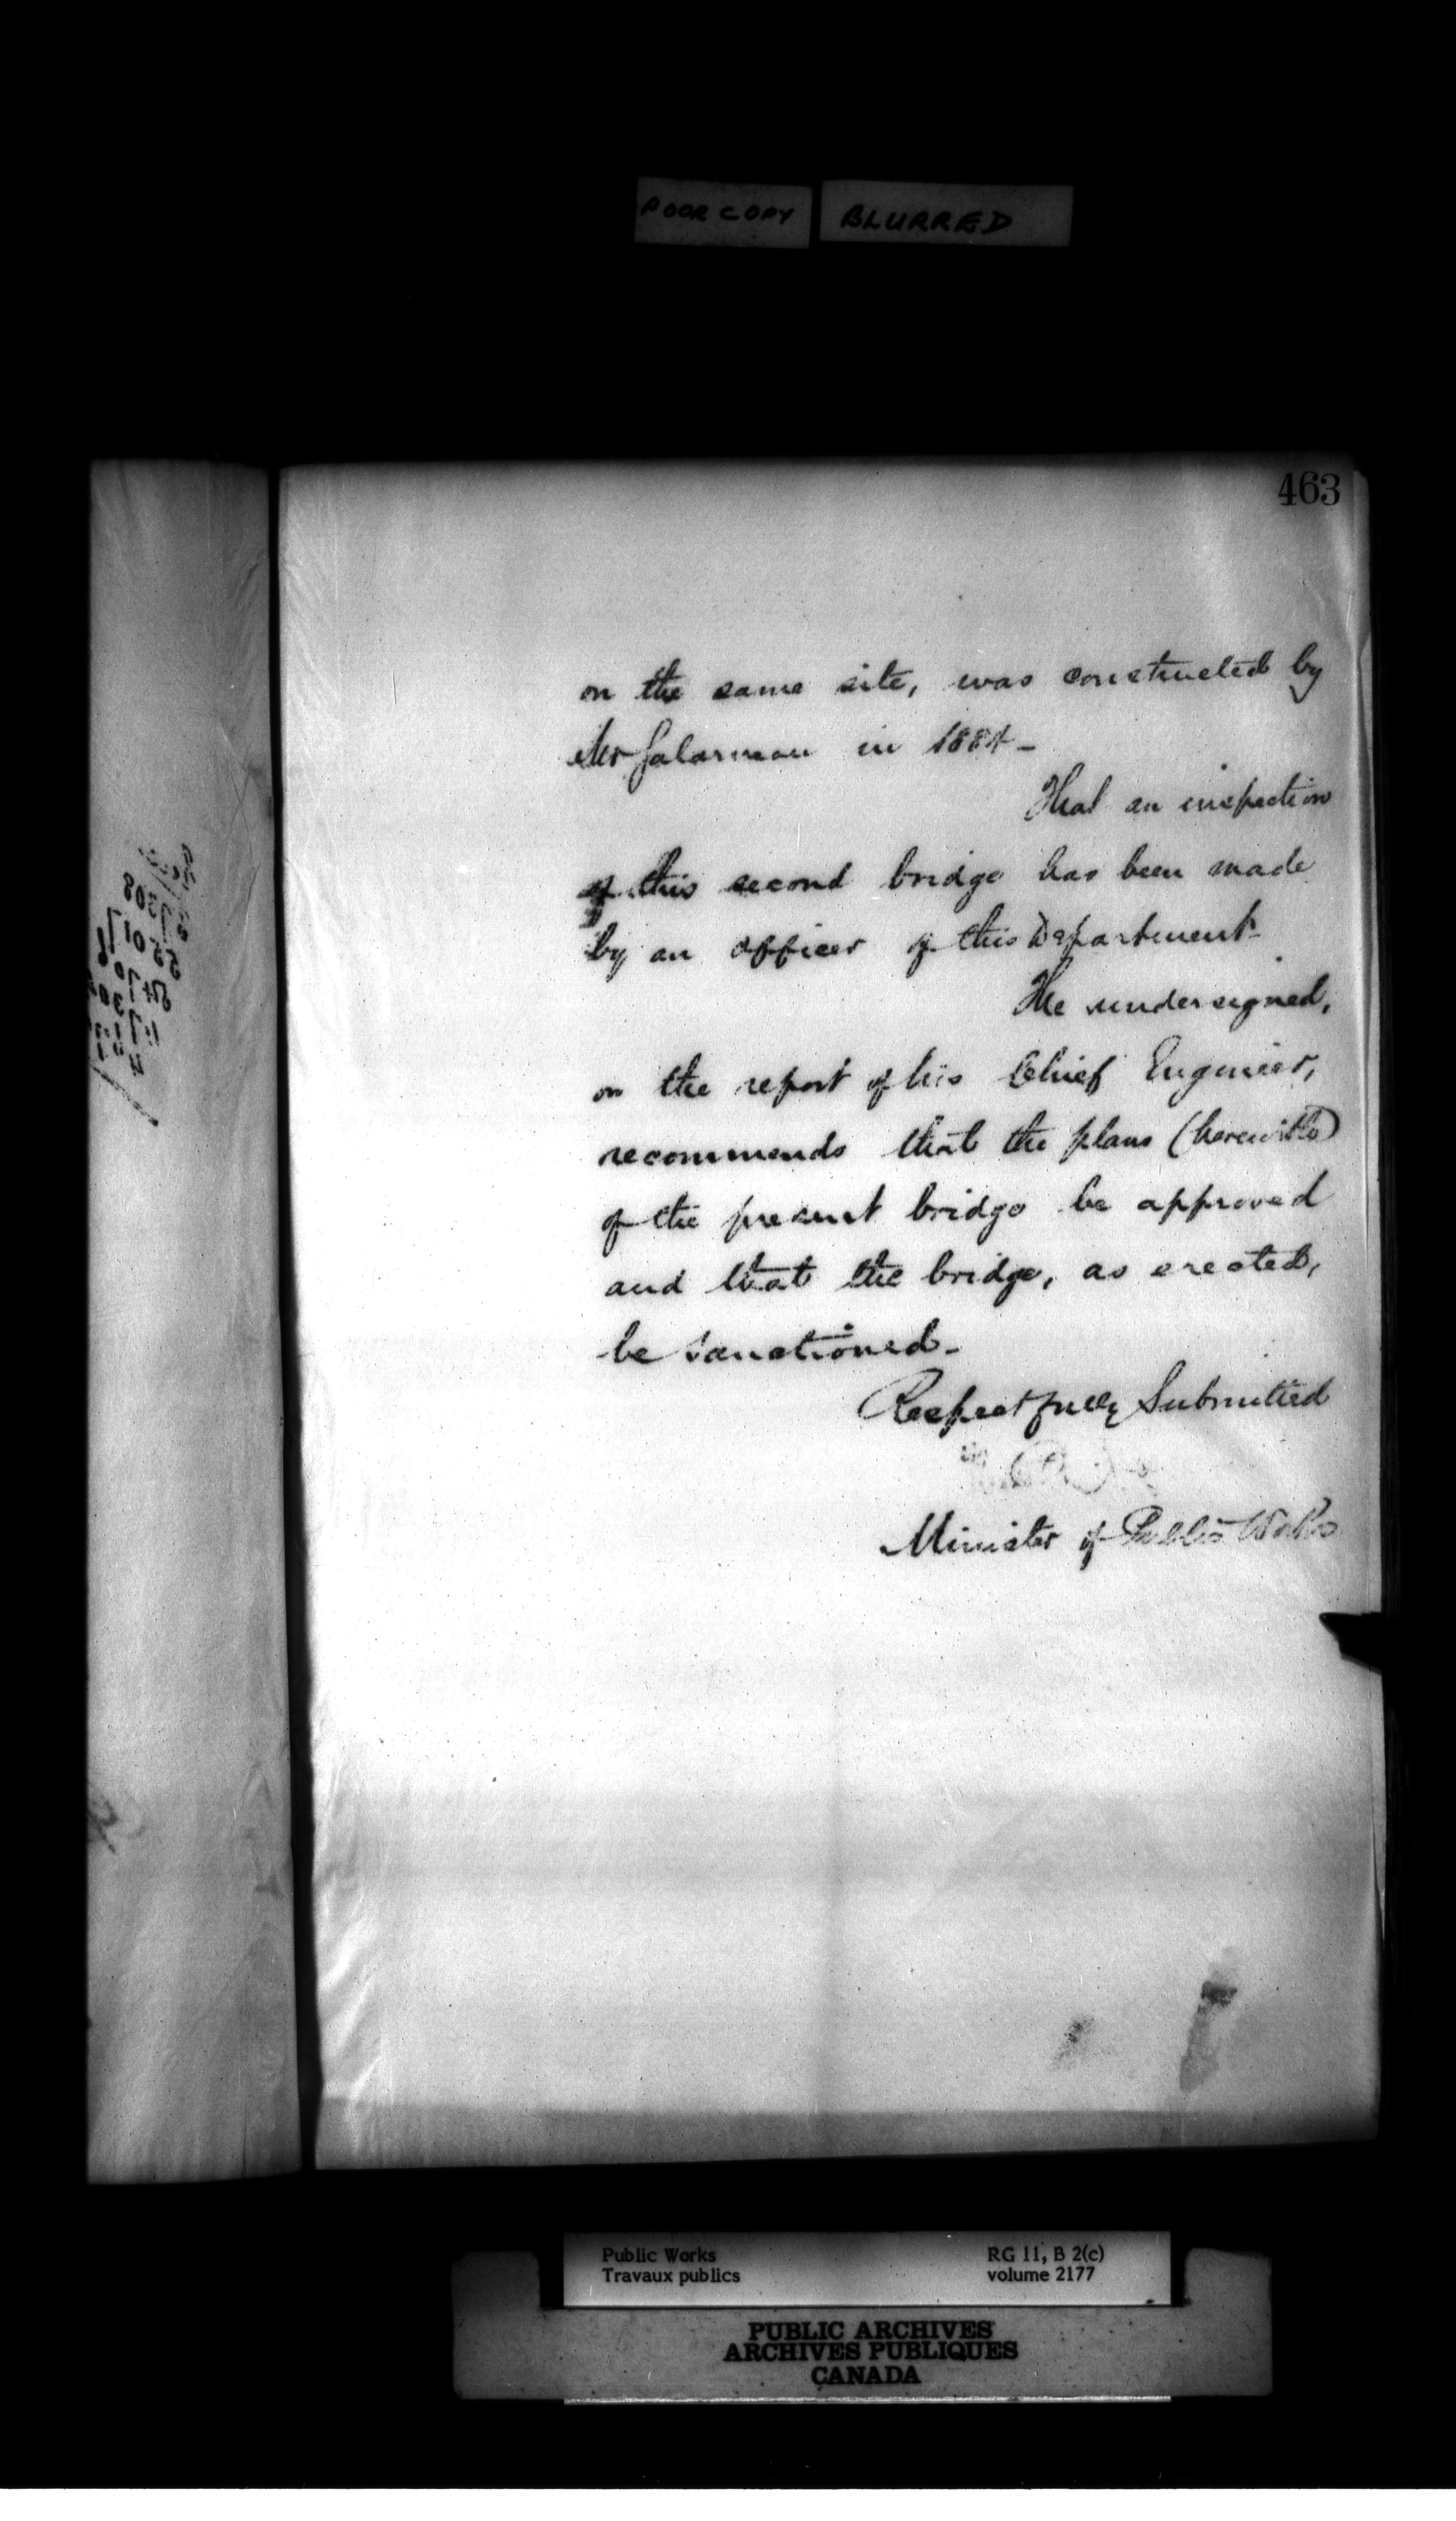 POOR COPY BLURRED
463
on the same site, was constructed by
Mr Galarneau in 1884-
That an inspection
of this second bridge has been made
by an officer of this Department-
The undersigned,
on the report of his Chief Engineer,
recommends that the plans (herewith)
of the present bridge be approved
and that the bridge, as erected,
be sanctioned-
Respectfully Submitted
Minister of Public Works
Public Works RG 11, B 2(c)
Travaux publics volume 2177
PUBLIC ARCHIVES
ARCHIVES PUBLIQUES
CANADA